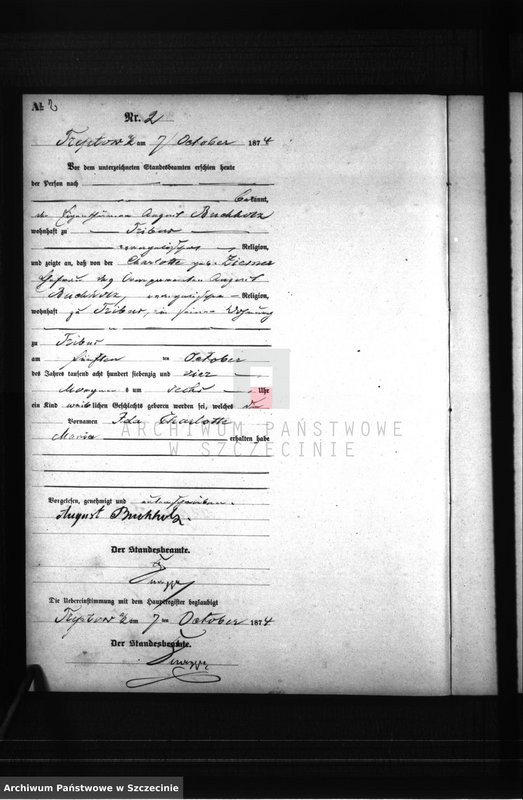 № 2
Nr. 2
Treptow a/R am 7 October 1874
Vor dem unterzeichneten Standesbeamten erschien heute
der Person nach
bekannt,
der Eigenthümer August Buchholz
wohnhaft zu Tribus
evangelischer Religion,
und zeigte an, daß von der Charlotte geb. Ziemer
Ehefrau des August
Buchholz, evangelischer Religion,
wohnhaft zu Tribus, in seiner Wohnung
zu Tribus
am fünften ten October
des Jahres tausend acht hundert siebenzig und vier
Morgens um sechs Uhr
ein Kind weiblichen Geschlechts geboren worden sei, welches die
Vornamen Ida Charlotte
Maria erhalten habe
ARCHIWUM PAŃSTWOWE
W SZCZECINIE
Vorgelesen, genehmigt und unterschrieben.
August Buchholz.
Der Standesbeamte.
Die Uebereinstimmung mit dem Hauptregister beglaubigt
Treptow a/R am 7 ten October 1874
Der Standesbeamte.
Archiwum Państwowe w Szczecinie